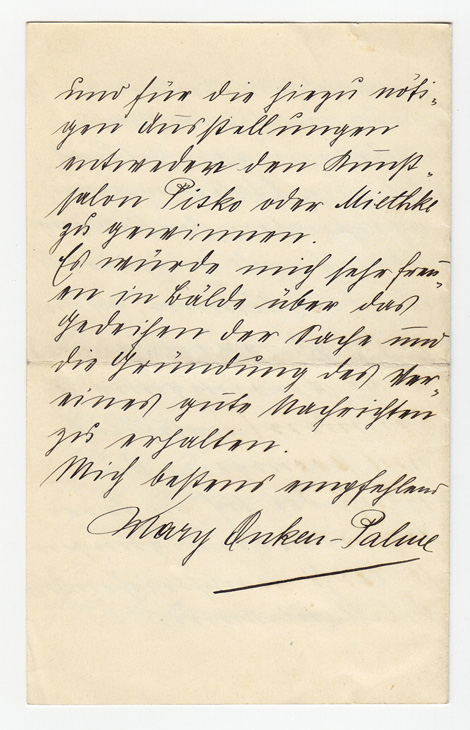 und für die hiezu nöti-
gen Ausstellungen
entweder den Kunst-
salon Pisko oder Miethke
zu gewinnen.
Es würde mich sehr freu-
en in Bälde über das
Gedeihen der Sache und
die Gründung des Ver-
eines gute Nachrichten
zu erhalten.
Mich bestens empfehlend
Mary Onken-Palme